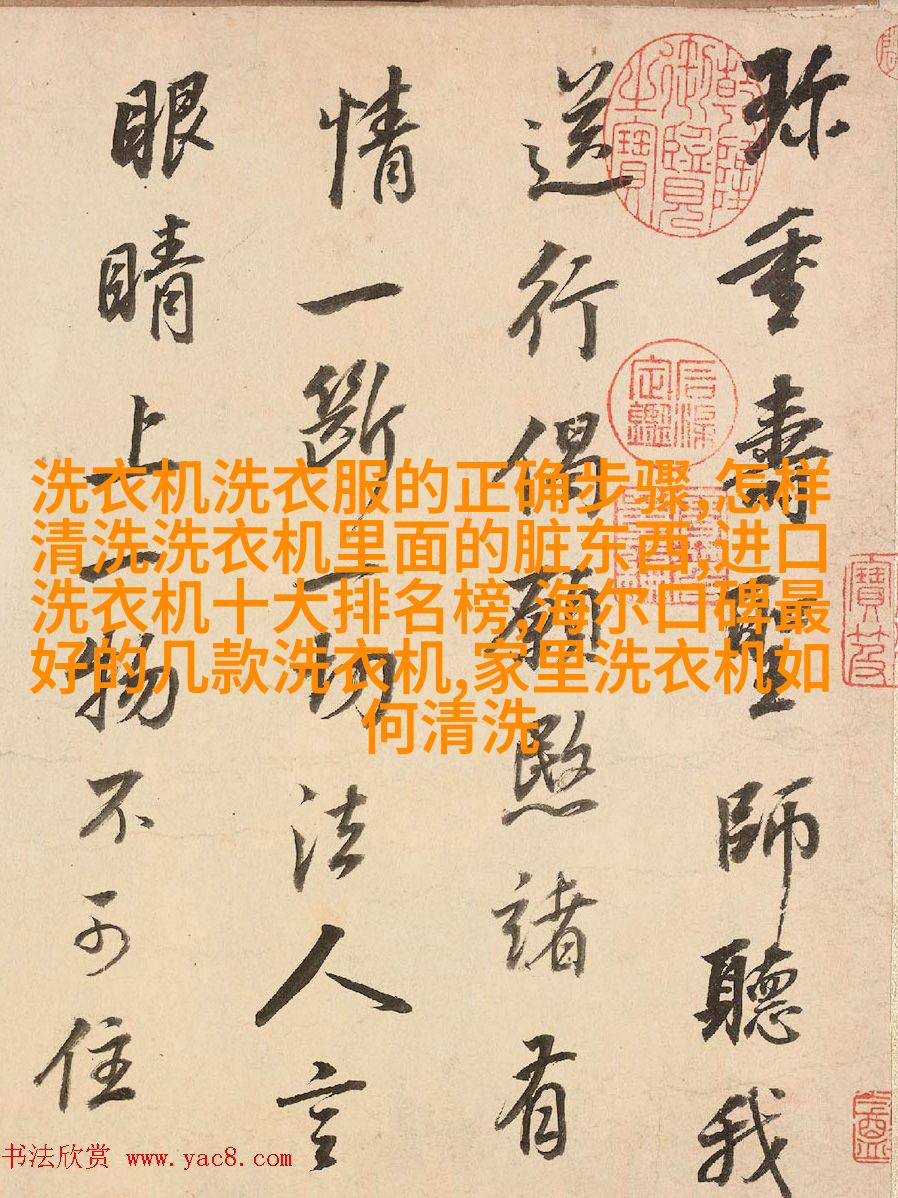 弥重壽聖師聽我
送行偈願愍諸有
情一斷一切法人言
眼睛上一物不可住
洗衣机洗衣服的正确步骤,怎样
清洗洗衣机里面的脏东西,进口
洗衣机十大排名榜,海尔口碑最
好的几款洗衣机,家里洗衣机如
何清洗
乾隆御覽之寶
书法欣赏 www.yac8.com